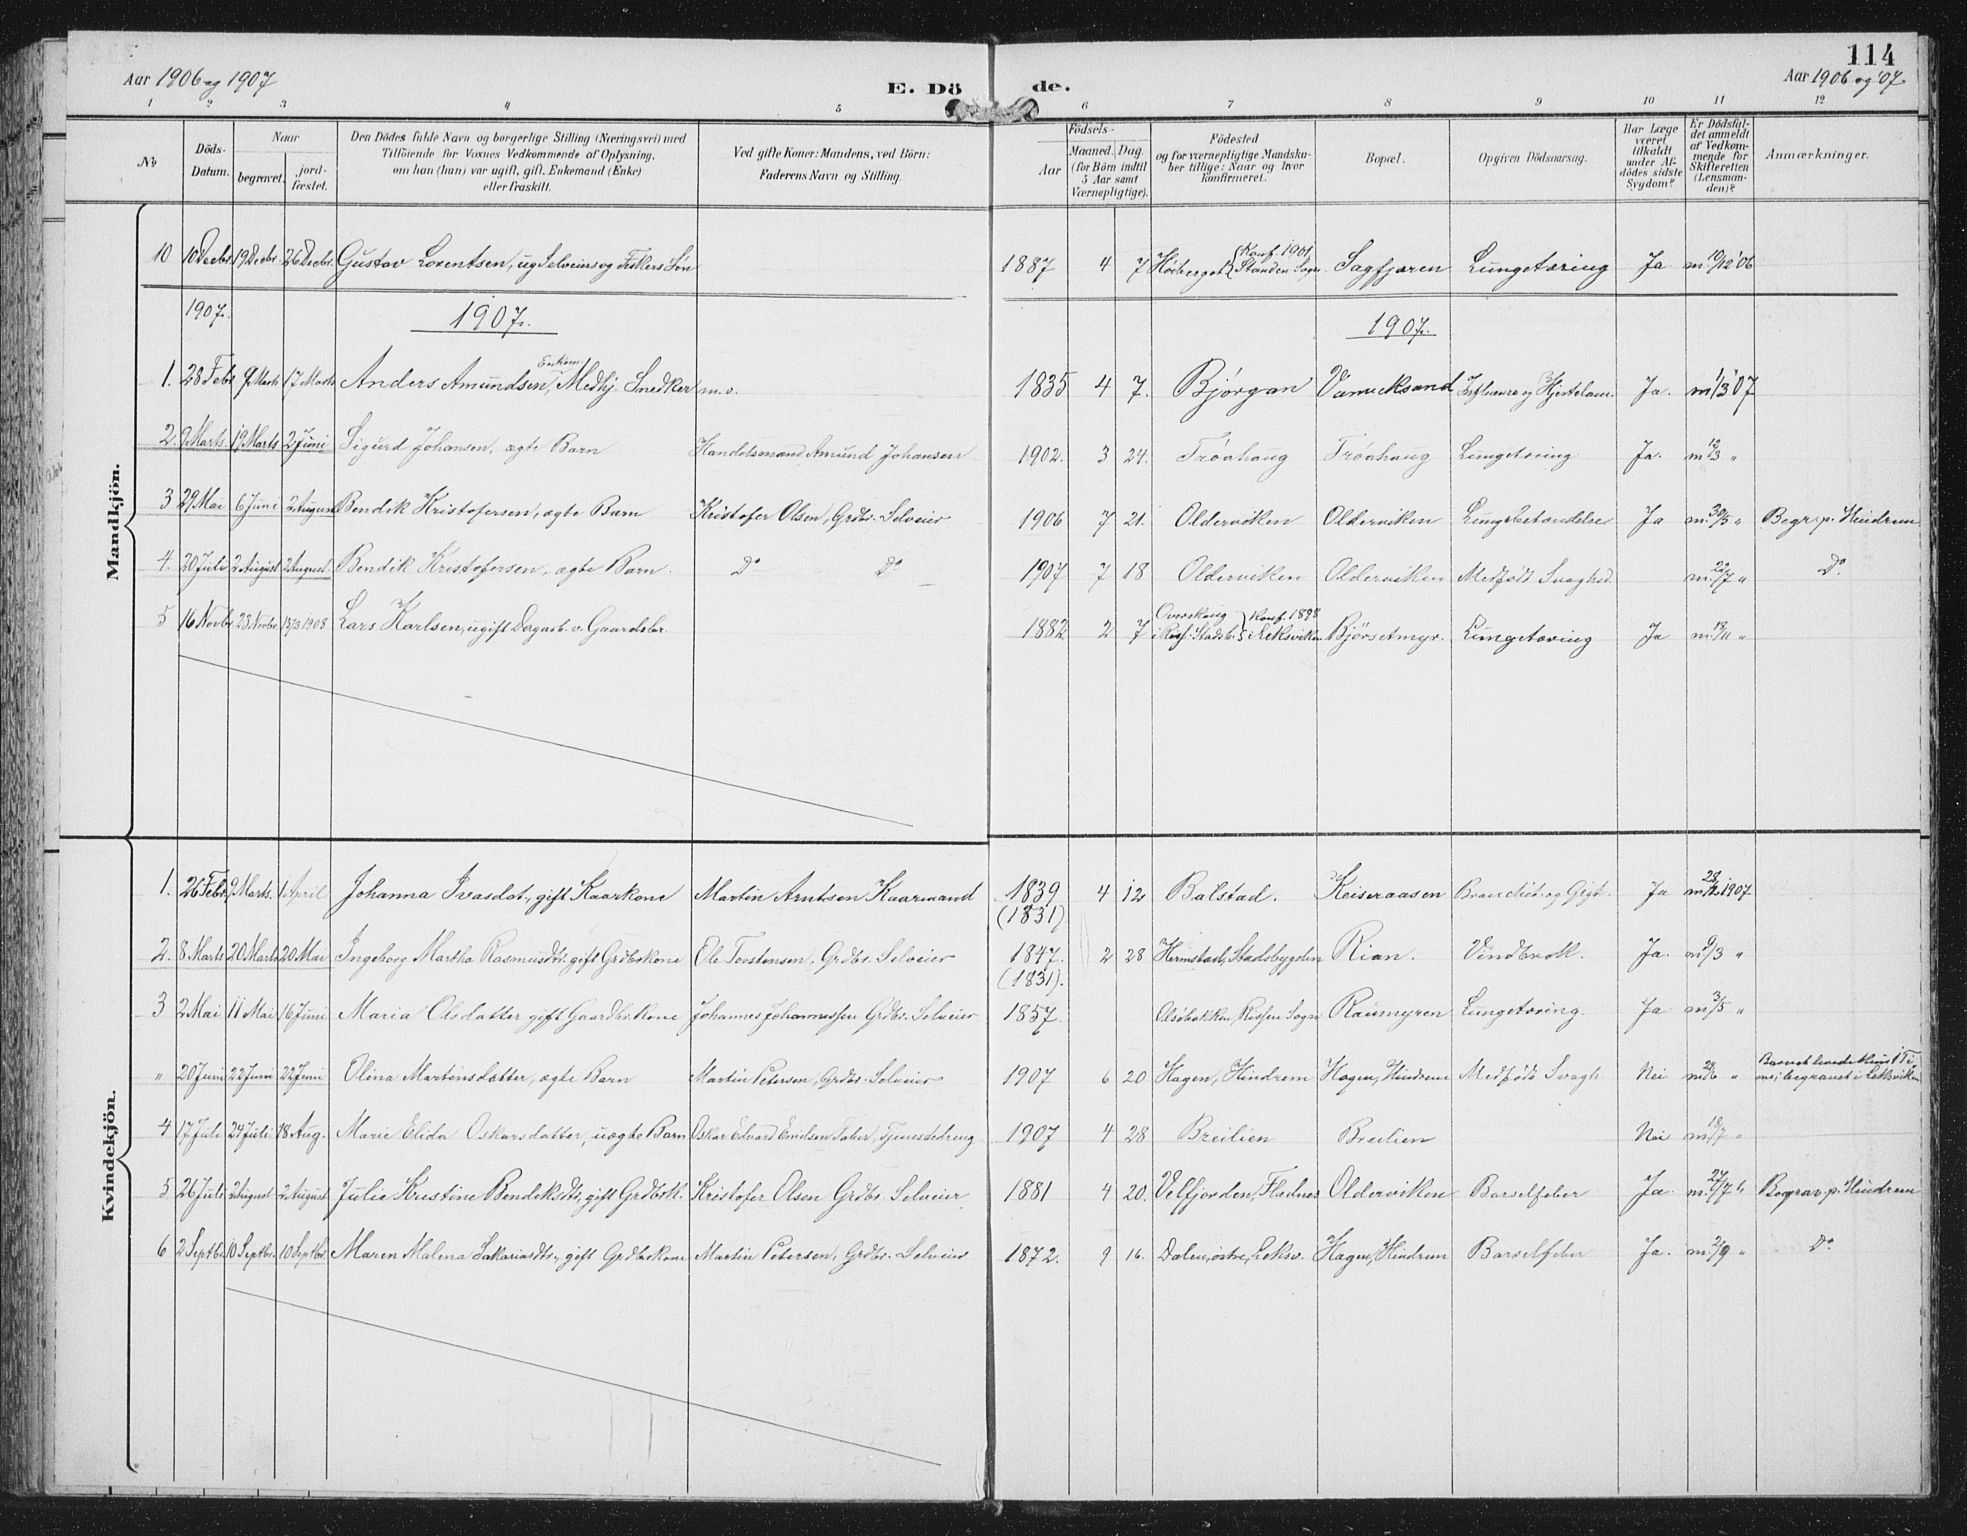 114
Aar 1906 og 1907
E. Dö
de.
Aar 1906 og '07.
1 2 3 4 5 6 7 8 9 10 11 12
No
Döds-
Datum.
Naar
begravet.
jord-
fæstet.
Den Dödes fulde Navn og borgerlige Stilling (Næringsvei) med
Tilföiende for Voxnes Vedkommende af Oplysning,
om han (hun) var ugift, gift, Enkemand (Enke)
eller fraskilt.
Ved gifte Koner: Mandens, ved Börn:
Faderens Navn og Stilling.
Födsels-
Aar
Maaned. Dag.
(for Börn indtil
5 Aar samt
Værnepligtige).
Födested
og for værnepligtige Mandska-
ber tillige: Naar og hvor
konfirmeret.
Bopæl.
Opgiven Dödsaarsag.
Har Læge
været
tilkaldt
under Af-
dödes sidste
Sygdom?
Er Dödsfal-
det anmeldt
af Vedkom-
mende for
Skifteretten
(Lensman-
den)?
Anmærkninger.
Mandkjön.
10 10 Decbr. 19 Decbr. 26 Decbr. Gustav Lorentsen, ug Selveiers og Fiskers Sön 1887 4 7 Höiberget { Konf. 1901 Standen Sogn Sagfjæren Lungetæring Ja m 10/12 '06
1907. 1907. 1907.
1. 28 Febr 9 Marts 17 Marts Anders Amundsen, Enkem. Medhj. Snedker m.v. 1835 4 7. Bjørgan Vamviksand Influensa og Hjertelam. Ja. m 1/3 '07
2. 9 Marts. 19 Marts 2 Juni Sigurd Johansen, ægte Barn Handelsmand Amund Johansen 1902. 3 24. Tröahaug Tröahaug Lungetæring Ja. m 12/3 "
3 29 Mai 6 Juni 2 August Bendik Kristofersen, ægte Barn Kristofer Olsen, Grdbr. Selveier 1906 7 21. Olderviken Olderviken Lungebetændelse Ja m. 30/5 " Begr. p. Hindrem
4. 20 Juli 2 August 2 August Bendik Kristofersen, ægte Barn. Do Do 1907 7 18 Olderviken Olderviken Medfödt Svaghed m. 22/7 " Do.
5 16 Novbr. 23 Novbr. 15/3 1908 Lars Karlsen, ugift Dagarb. v. Gaardsbr. 1882 2 7 Overskaug i Röf. Stadsb. } Konf. 1898 i Leksviken Björsetmyr. Lungetæring Ja m. 18/11 "
Kvindekjön.
1. 26 Febr. 9 Marts. 1 April Johanna Ivasdot., gift Kaarkone Martin Arntsen Kaarmand 1839 (1831) 4 12 Balstad. Keiseraasen Brandbit og Gigt. Ja m 28/2 1907
2. 8 Marts 20 Marts 20 Mai Ingeborg Martha Rasmusdtr. gift Grdbrkone Ole Torstensen, Grdbr. Selveier 1847. (1831). 2 28 Hermstad, Stadsbygden Rian. Vindbrok. Ja. m 9/3 "
3 2 Mai 11 Mai 16 Juni Maria Olsdatter gift Gaardbr. Kone Johannes Johannessen Grdbr. Selveier 1857. Olsöbakken, Rissen Sogn Raumyren Lungetæring. Ja m 3/5 "
" 20 Juni 22 Juni 22 Juni Olina Martinsdatter, ægte Barn Martin Petersen, Grdbr. Selveier 1907 6 20 Hagen, Hindrem Hagen, Hindrem Medfödt Svagh. Nei m 24/6 " Barnet levede kun 1 Ti- me; begravet i Leksviken
4 17 Juli 24 Juli 18 Aug. Marie Elida Oskarsdatter, uægte Barn Oskar Edvard Emilsen Taber, Tjenestedreng 1907 4 28 Breilien Breilien Nei m. 18/7 "
5 26 Juli 2 August 2 August Julie Kristine Bendiksdtr., gift Grdbrk. Kristofer Olsen Grdbr. Selveier 1881 4 20. Velfjorden, Fladnes Olderviken Barselfeber Ja. m. 27/7 " Begrav. p. Hindrem
6 2 Septbr. 10 Septbr. 10 Septbr. Maren Malena Sakariasdtr., gift Grdbrkone Martin Petersen, Grdbr. Selveier 1872. 9 16. Dalen, östre, Leksv. Hagen, Hindrem Barselfeber Ja. m. 2/9 " Do